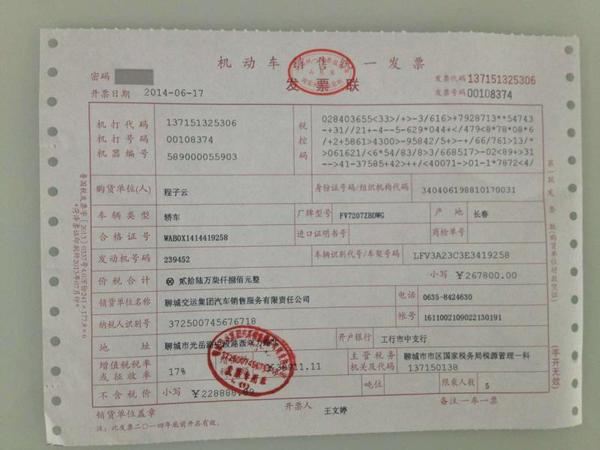 机动车销售统一发票
发票联
密码
开票日期 2014-06-17
发票代码 137151325306
发票号码 00108374
机打代码 137151325306
机打号码 00108374
机器编号 589000055903
税控码
028403655<33>/+>-3/616>+7928713**54743
-+31//21+-4--5-629*044+</479<8*78*08*6
/+2+5861+4300>-95842/5+>-+/66/761>13/*
>061621/<6*54/83/8>3/668517>-02<89+>31
--->41-37585+42>++/<40071->01-1*7872<4/
购货单位(人) 程子云
身份证号码/组织机构代码 340406198810170031
车辆类型 轿车
厂牌型号 FV7207ZBDWG
产地 长春
合格证号 WAB0X1414419258
进口证明书号
商检单号
发动机号码 239452
车辆识别代号/车架号码 LFV3A23C3E3419258
价税合计 ⊗ 贰拾陆万柒仟捌佰元整
小写 ￥267800.00
销货单位名称 聊城交运集团汽车销售服务有限责任公司
电话 0635-8424630
纳税人识别号 372500745676718
帐号 1611002109022130191
地址
开户银行 工行市中支行
增值税税率或征收率 17%
主管税务机关及代码 聊城市市区国家税务局税源管理一科
137150138
不含税价 小写
吨位
限乘人数 5
销货单位盖章
开票人 王文婷
备注:一车一票
注：此发票二〇一四年底前开具有效。
第一联 发票联(购货单位付款凭证)
(手开无效)